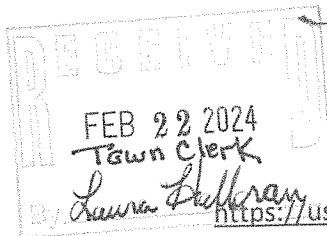 RECEIVED
FEB 22 2024
Town Clerk
By Laura Halloran
https://us